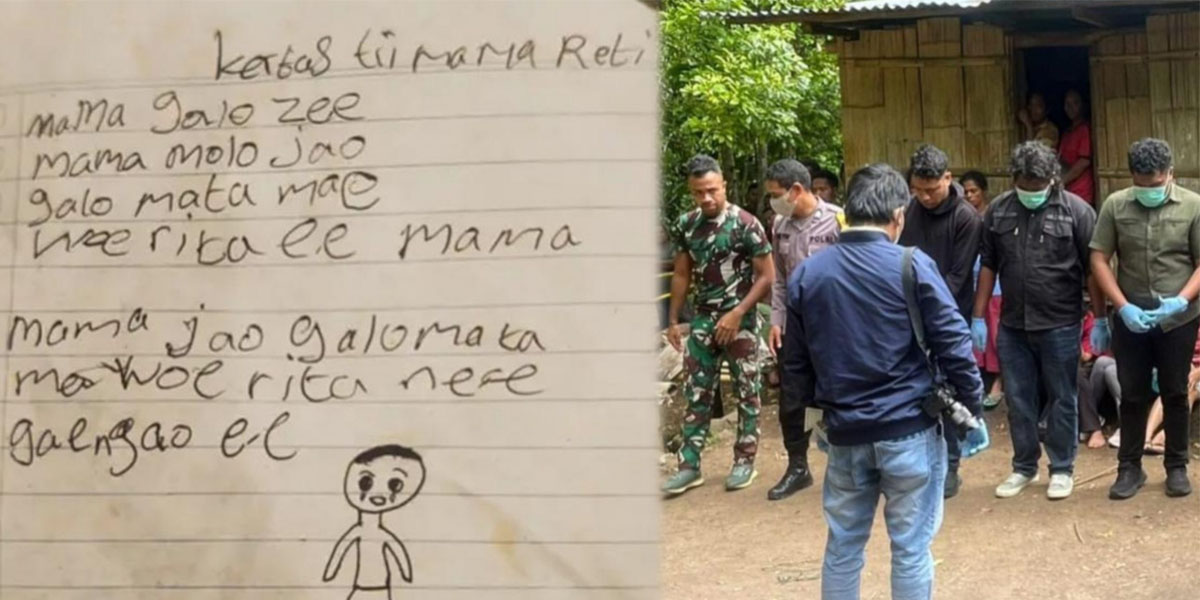 kertas tii mama Reti
mama galo zee
mama molo jao
galo mata mae
woe rita ee mama
mama jao galo mata
mae woe rita ne e
gaengao e e
POLISI